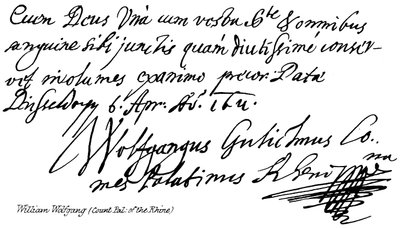 Quem Deus Vna cum vestra S.te & omnibus
sanguine sibi junctis quam diutissimè conser-
vet incolumes ex animo precor. Data
Düsseldorp 6. Apr. A.o
Wolfgangus Guilielmus Co-
mes Palatinus Rheni
William Wolfgang (Count Pal: of the Rhine)